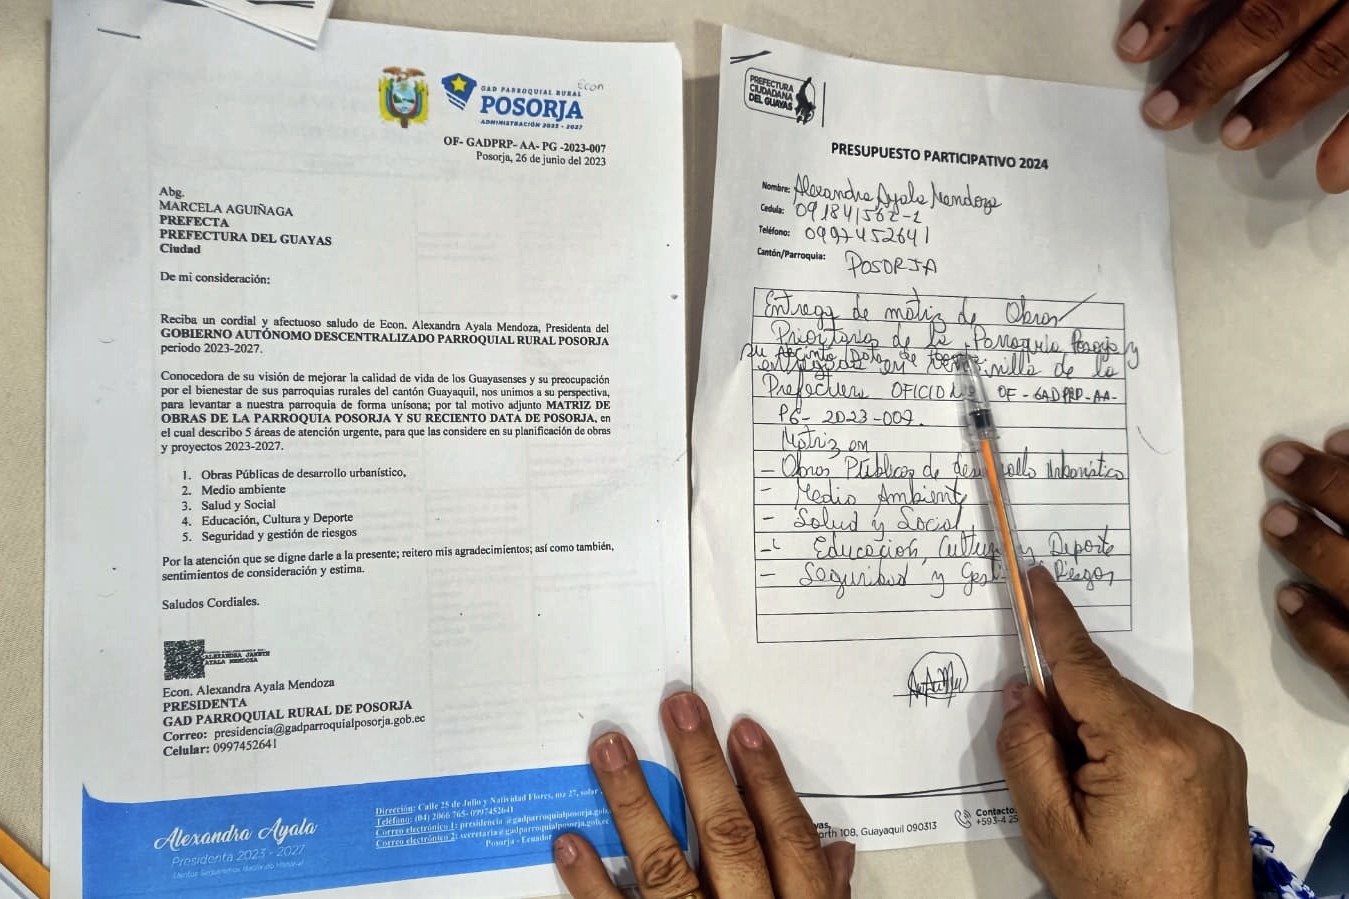 Econ
GAD PARROQUIAL RURAL
POSORJA
ADMINISTRACIÓN 2023 - 2027
OF- GADPRP- AA- PG -2023-007
Posorja, 26 de junio del 2023
Abg.
MARCELA AGUIÑAGA
PREFECTA
PREFECTURA DEL GUAYAS
Ciudad
De mi consideración:
Reciba un cordial y afectuoso saludo de Econ. Alexandra Ayala Mendoza, Presidenta del
GOBIERNO AUTÓNOMO DESCENTRALIZADO PARROQUIAL RURAL POSORJA
periodo 2023-2027.
Conocedora de su visión de mejorar la calidad de vida de los Guayasenses y su preocupación
por el bienestar de sus parroquias rurales del cantón Guayaquil, nos unimos a su perspectiva,
para levantar a nuestra parroquia de forma unísona; por tal motivo adjunto MATRIZ DE
OBRAS DE LA PARROQUIA POSORJA Y SU RECIENTO DATA DE POSORJA, en
el cual describo 5 áreas de atención urgente, para que las considere en su planificación de obras
y proyectos 2023-2027.
1. Obras Públicas de desarrollo urbanístico,
2. Medio ambiente
3. Salud y Social
4. Educación, Cultura y Deporte
5. Seguridad y gestión de riesgos
Por la atención que se digne darle a la presente; reitero mis agradecimientos; así como también,
sentimientos de consideración y estima.
Saludos Cordiales.
ALEXANDRA JANETH
AYALA MENDOZA
Econ. Alexandra Ayala Mendoza
PRESIDENTA
GAD PARROQUIAL RURAL DE POSORJA
Correo: presidencia@gadparroquialposorja.gob.ec
Celular: 0997452641
Alexandra Ayala
Presidenta 2023 - 2027
Dirección: Calle 25 de Julio y Natividad Flores, mz 27, solar
Teléfono: (04) 2066 765- 0997452641
Correo electrónico 1: presidencia@gadparroquialposorja.gob.
Correo electrónico 2: secretaria@gadparroquialposorja.gob.ec
Posorja - Ecuador
PREFECTURA
CIUDADANA
DEL GUAYAS
PRESUPUESTO PARTICIPATIVO 2024
Nombre: Alexandra Ayala Mendoza
Cedula: 091841562-1
Teléfono: 0997452641
Cantón/Parroquia: POSORJA
Entrega de matriz de Obras
Prioritarias de la Parroquia Posorja y
su Recinto Data de
entregadas en de la
Prefectura OF - GADPRP-AA-
PG- 2023-007.
Matriz en
- Obras Públicas de desarrollo Urbanístico
- Medio Ambiente
- Salud y Social
- Educación, Cultura y Deporte
- Seguridad y Riesgos
orth 108, Guayaquil 090313
Contacto:
+593-4 25